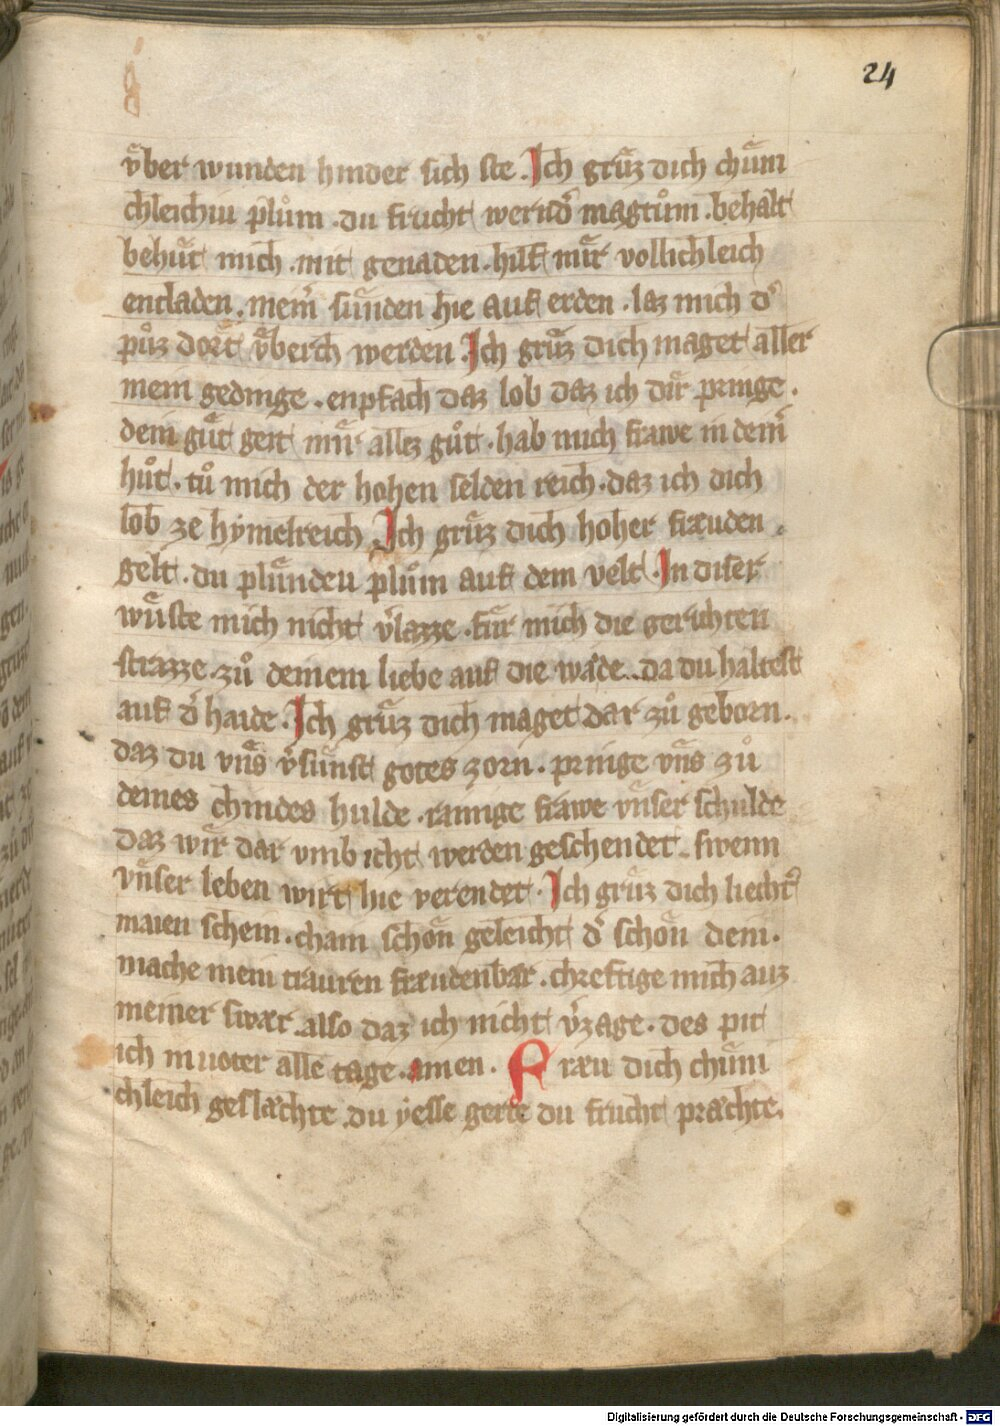 24
vͤber wunden hinder sich ste. Ich gruͤz dich chuͤni
chleichiu pluͦm. du frucht wernd' magtuͦm. behalt
behuͤt mich. mit genaden. hilf mir vollichleich
entladen. mein' suͤnden hie auf erden. laz mich d'
puͦz dort vͤberch werden. Ich gruͤz dich maget aller
mein gedinge. enpfach daz lob daz ich dir pringe.
dein guͤt geit mir allez guͦt. hab mich frawe in dein'
huͦt. tuͦ mich der hohen selden reich. daz ich dich
lob ze hymelreich. Ich gruͤz dich hoher fræuden
gelt. du pluͤndeu pluͦm auf dem velt. In diser
wuͤste mich nicht v'lazze. fuͤr mich die gerichten
strazze. zuͦ deinem liebe auf die waͤide. da du haltest
auf d' haide. Ich gruͤz dich maget dar zuͦ geborn.
daz du vns v'suͤnst gotes zorn. pringe vns zuͦ
deines chindes hulde. rainige frawe vnser schulde
daz wir dar vmb icht werden geschendet. swenn
vnser leben wirt hie verendet. Ich gruͤz dich liecht'
maien schein. cham schoͤn geleicht d' schoͤn dein.
mache mein trauren fræudenbær. chreftige mich auz
meiner swær. also daz ich nicht v'zage. des pit
ich muoter alle tage. amen. Fræu dich chuͤni
chleich geslæchte. du yesse gerte du frucht præchte.
Digitalisierung gefördert durch die Deutsche Forschungsgemeinschaft - DFG